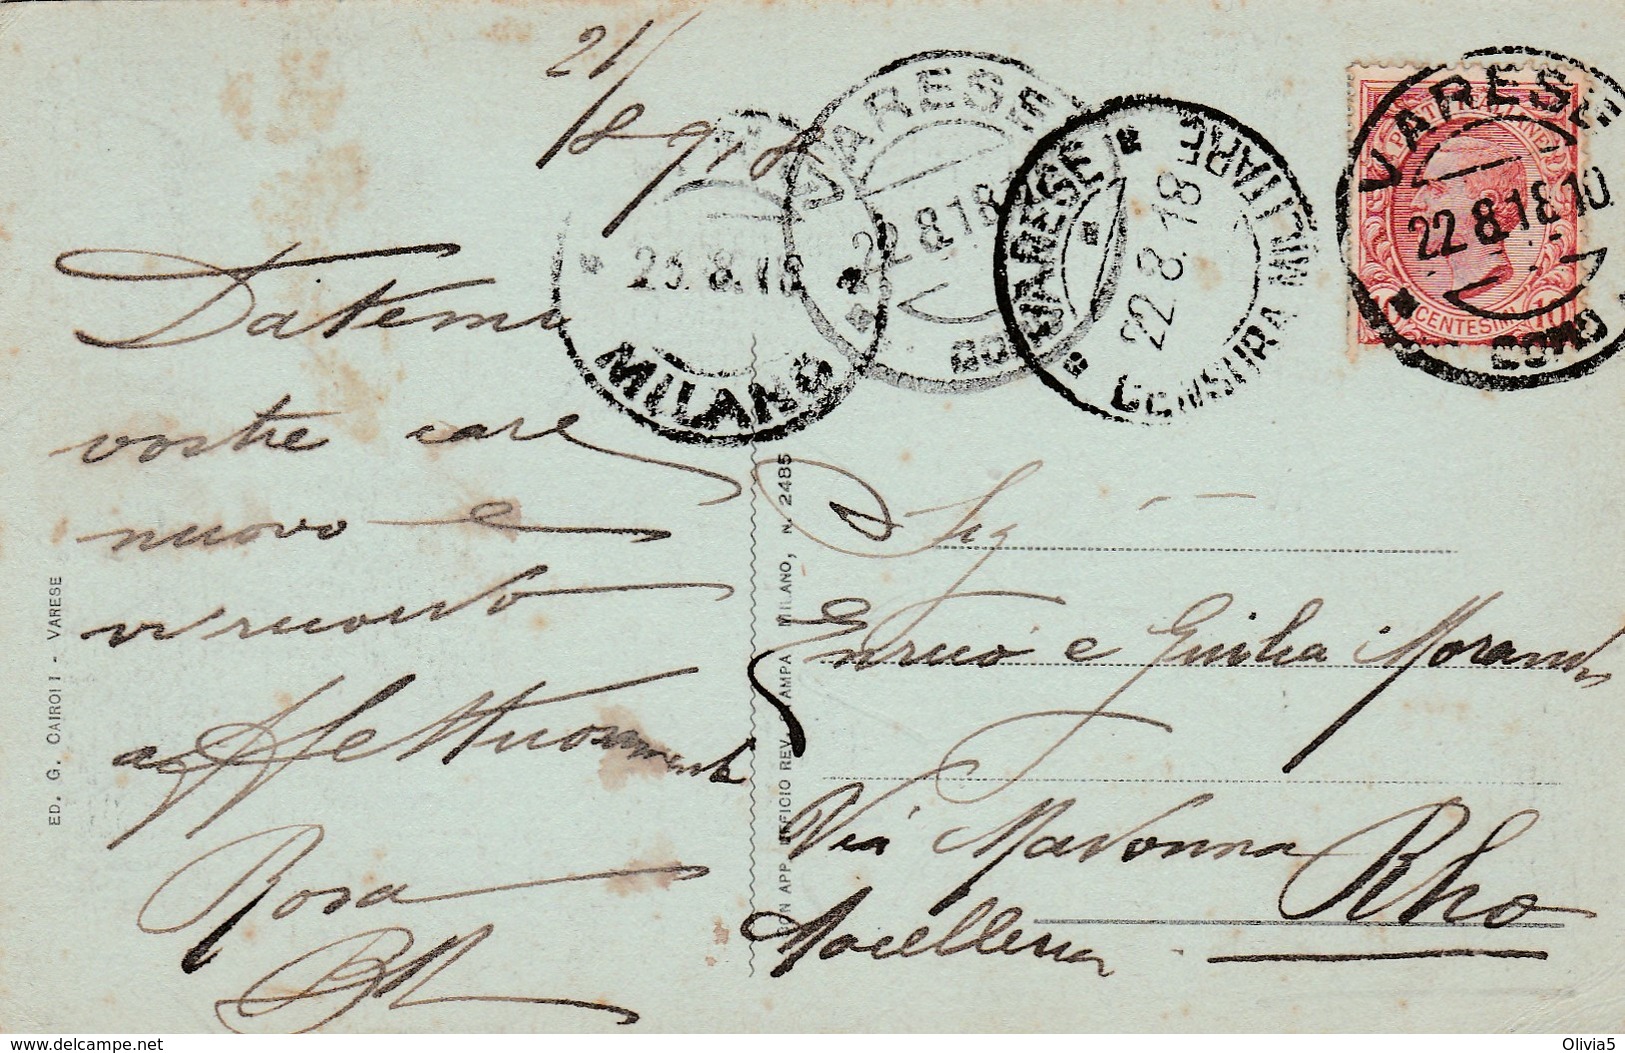 21/8 918
Datemi
vostre care
nuove e
vi ricordo
affettuosamente
Rosa
BM
ED. G. CAIROLI - VARESE
NON APP. UFFICIO REV. STAMPA MILANO, N. 2485
MILANO
23.8.18
VARESE
22.8.18
COMO
VARESE
22.8.18
CENSURA MILITARE
VARESE
22.8.18 10
COMO
POSTE
CENTESIMI 10
Sig
Enrico e Giulia Morandi
Via Madonna
Rho
Macelleria
www.delcampe.net
Olivia5